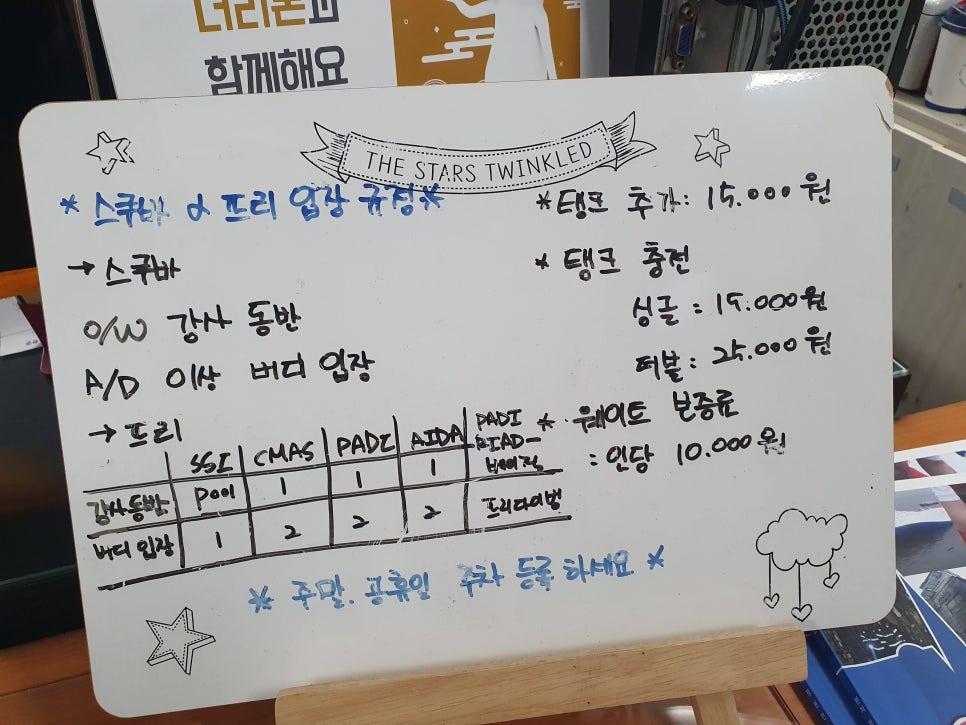 더리본과
함께해요
THE STARS TWINKLED
* 스쿠바 & 프리 입장 규정 *
→ 스쿠바
O/W 강사 동반
A/D 이상 버디 입장
→ 프리
SSI CMAS PADI AIDA PADI AIAD- 베이직
강사동반 Pool 1 1 1 프리다이벙
버디 입장 1 2 2 2
* 탱크 추가: 15.000원
* 탱크 충전
싱글 : 15.000원
더블 : 25.000원
* 웨이트 보증료
: 인당 10.000원
* 주말. 공휴일 주차 등록 하세요 *